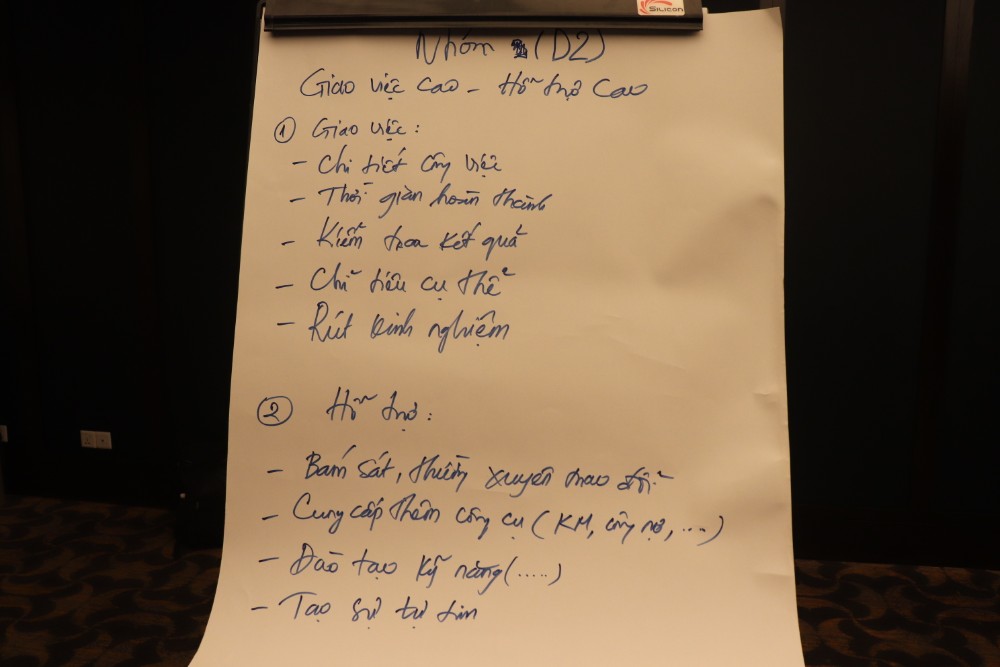 SILICON
Nhóm 2 (D2)
Giao việc cao - Hỗ trợ cao
① Giao việc:
- Chi tiết công việc
- Thời gian hoàn thành
- Kiểm tra kết quả
- Chỉ tiêu cụ thể
- Rút kinh nghiệm
② Hỗ trợ:
- Bám sát, thường xuyên trao đổi
- Cung cấp thêm công cụ (KM, công nợ, ....)
- Đào tạo kỹ năng (.....)
- Tạo sự tự tin